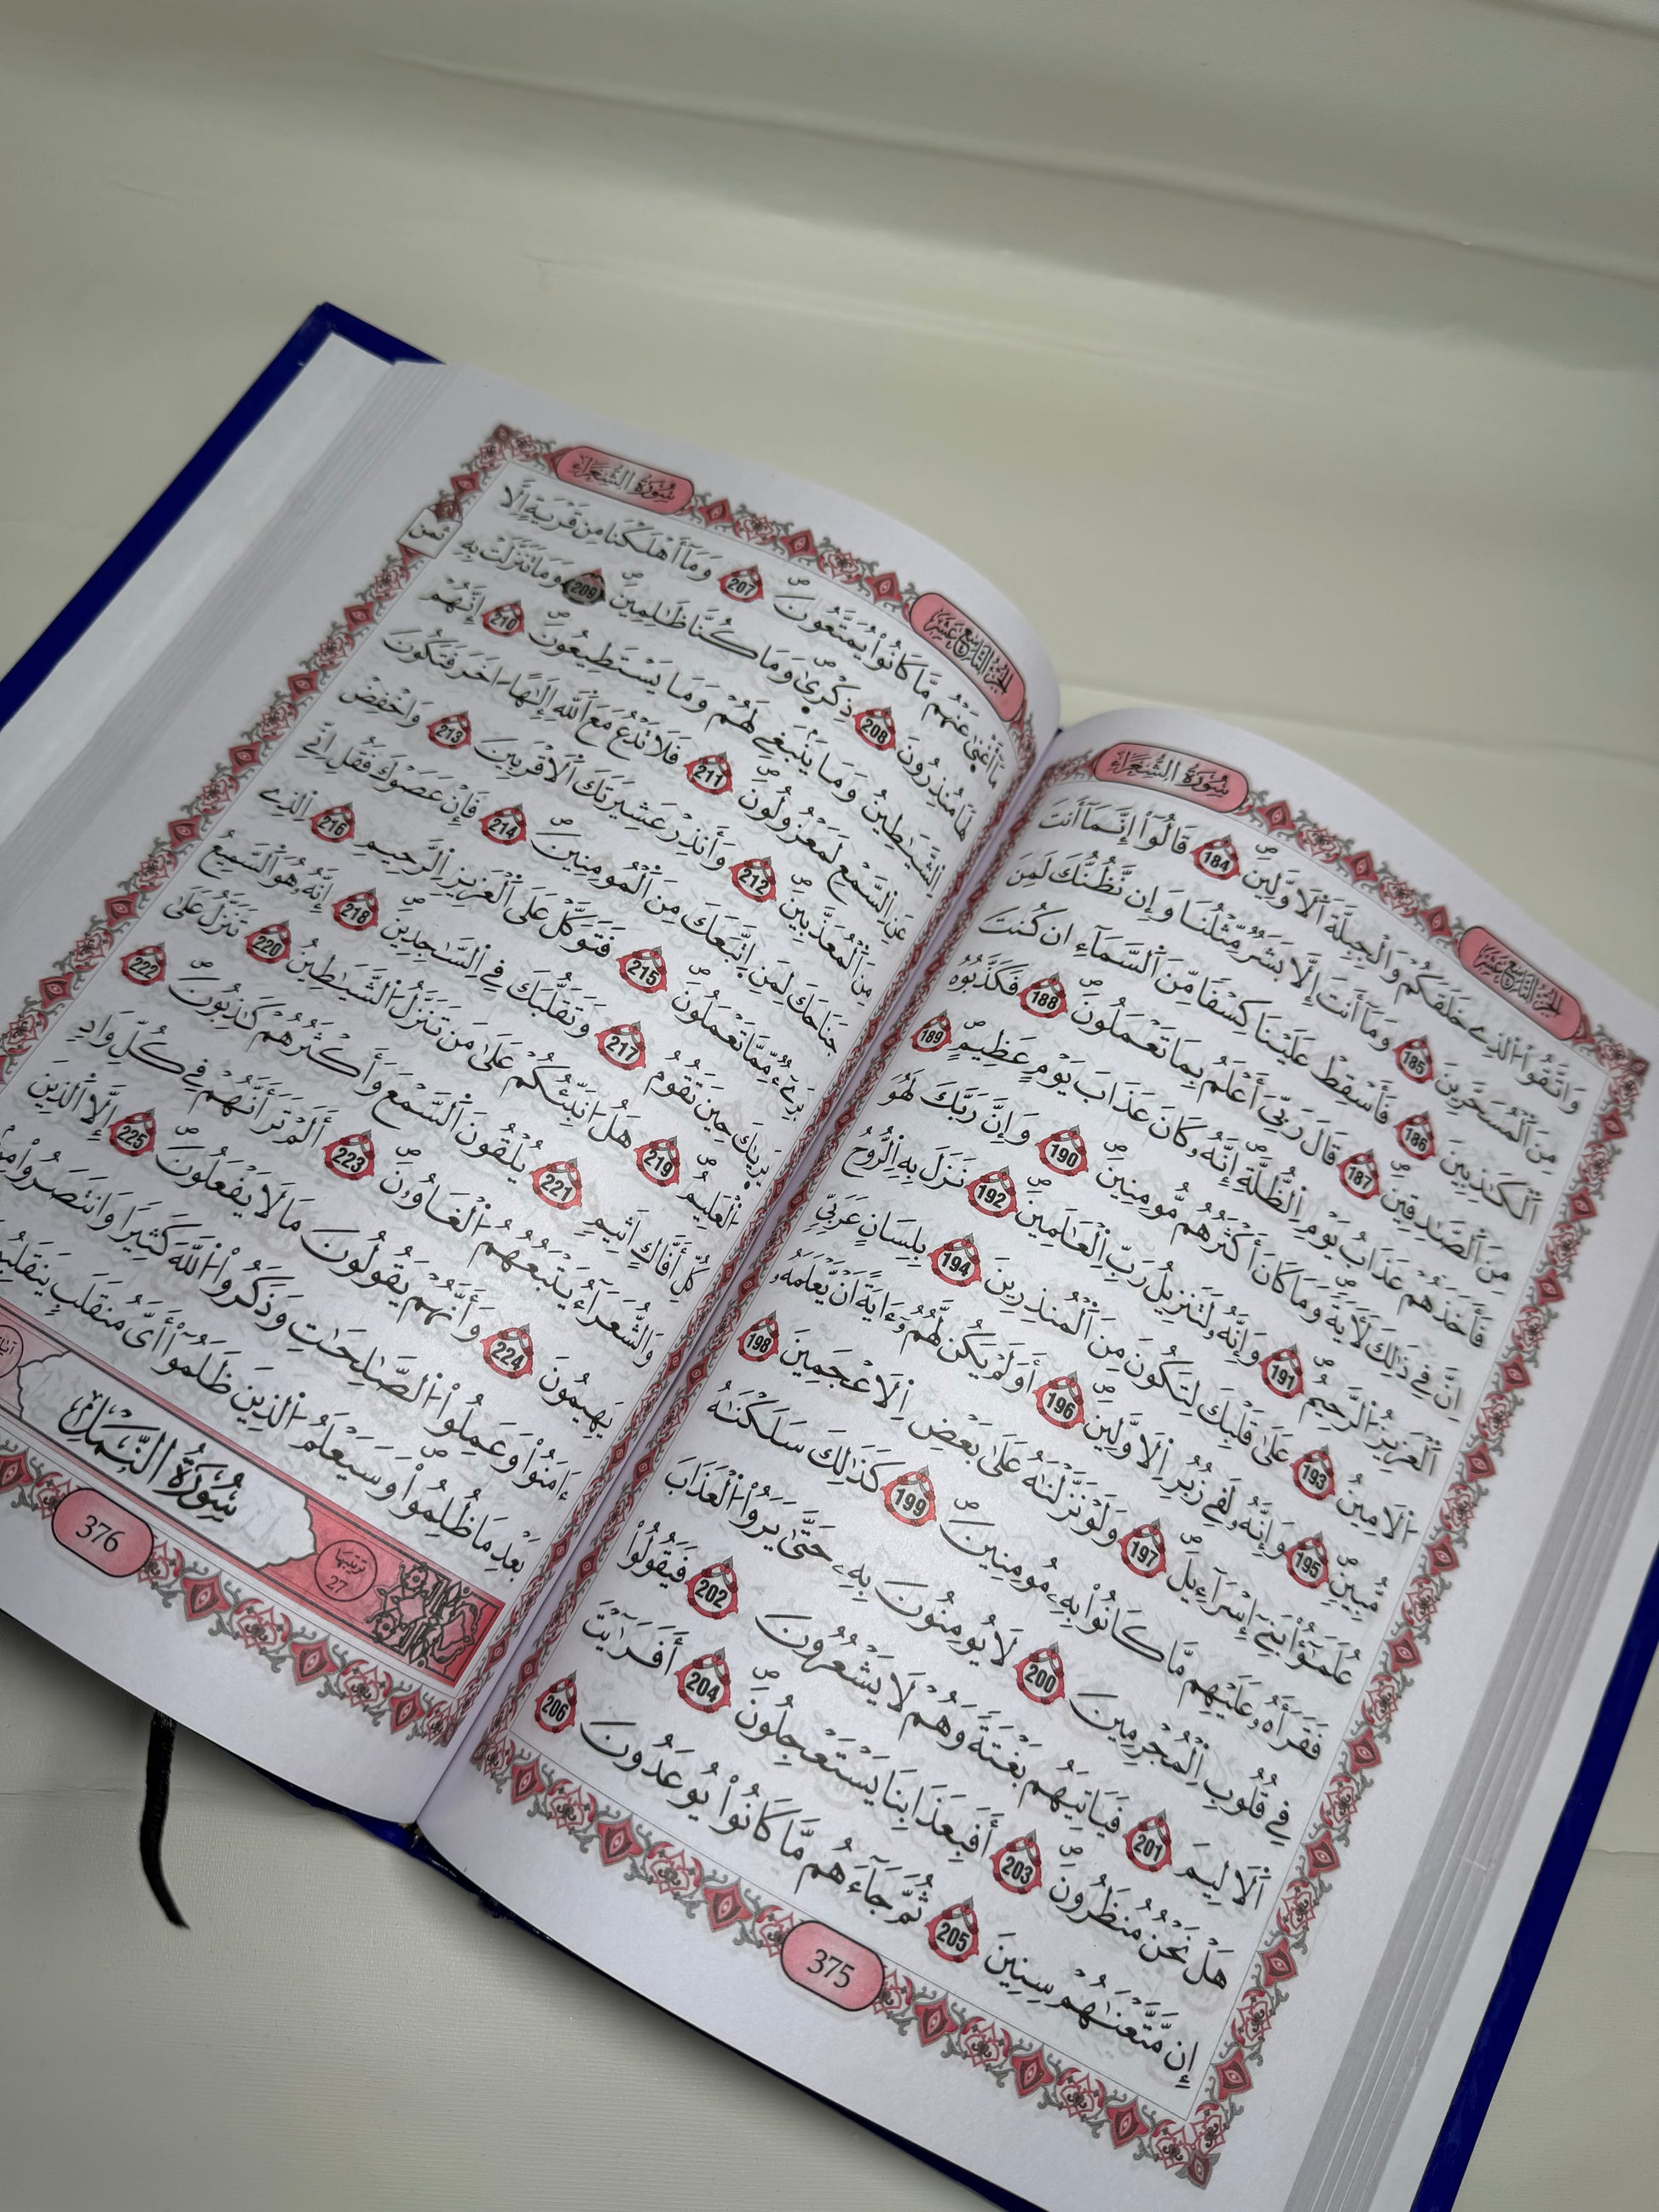 الجزء التاسع عشر
سُورَةُ الشُّعَرَاء
وَاتَّقُواْ الذِے خَلَقَكُمْ وَالْجِبِلَّةَ اَلَاوَّلِينَۖ 184 قَالُوٓاْ إِنَّمَآ أَنتَ
مِنَ اَلْمُسَحَّرِينَ 185 وَمَآ أَنتَ إِلَّا بَشَرٌ مِّثْلُنَا وَإِن نَّظُنُّكَ لَمِنَ
اَلْكَٰذِبِينَۖ 186 فَأَسْقِطْ عَلَيْنَا كِسْفاً مِّنَ اَلسَّمَآءِ ان كُنتَ
مِنَ اَلصَّٰدِقِينَۖ 187 قَالَ رَبِّيَ أَعْلَمُ بِمَا تَعْمَلُونَۖ 188 فَكَذَّبُوهُ
فَأَخَذَهُمْ عَذَابُ يَوْمِ اِلظُّلَّةِۖ إِنَّهُۥ كَانَ عَذَابَ يَوْمٍ عَظِيمٍۖ 189
اِنَّ فِي ذَٰلِكَ لَأٓيَةًۖ وَمَا كَانَ أَكْثَرُهُم مُّومِنِينَۖ 190 وَإِنَّ رَبَّكَ لَهُوَ
اَلْعَزِيزُ الرَّحِيمُۖ 191 وَإِنَّهُۥ لَتَنزِيلُ رَبِّ اِلْعَٰلَمِينَۖ 192 نَزَلَ بِهِ اِلرُّوحُ
الَامِينُ 193 عَلَىٰ قَلْبِكَ لِتَكُونَ مِنَ اَلْمُنذِرِينَ 194 بِلِسَانٍ عَرَبِيّٖ
مُّبِينٖۖ 195 وَإِنَّهُۥ لَفِے زُبُرِ اِلَاوَّلِينَۖ 196 أَوَلَمْ يَكُن لَّهُمُۥٓ ءَايَةً اَنْ يَّعْلَمَهُۥ
عُلَمَٰٓؤُاْ بَنِےٓ إِسْرَآءِيلَۖ 197 وَلَوْ نَزَّلْنَٰهُ عَلَىٰ بَعْضِ اِلَاعْجَمِينَ 198
فَقَرَأَهُۥ عَلَيْهِم مَّا كَانُواْ بِهِۦ مُومِنِينَۖ 199 كَذَٰلِكَ سَلَكْنَٰهُ
فِے قُلُوبِ اِلْمُجْرِمِينَ 200 لَا يُومِنُونَ بِهِۦ حَتَّىٰ يَرَوُاْ اُلْعَذَابَ
اَلَالِيمَ 201 فَيَاتِيَهُم بَغْتَةً وَهُمْ لَا يَشْعُرُونَ 202 فَيَقُولُواْ
هَلْ نَحْنُ مُنظَرُونَۖ 203 أَفَبِعَذَابِنَا يَسْتَعْجِلُونَۖ 204 أَفَرَٰيْتَ
إِن مَّتَّعْنَٰهُمْ سِنِينَ 205 ثُمَّ جَآءَهُم مَّا كَانُواْ يُوعَدُونَ 206
375
الجزء التاسع عشر
سُورَةُ الشُّعَرَاء
مَآ أَغْنَىٰ عَنْهُم مَّا كَانُواْ يُمَتَّعُونَۖ 207 وَمَآ أَهْلَكْنَا مِن قَرْيَةٍ اِلَّا
ثمن
لَهَا مُنذِرُونَ 208 ذِكْر۪ىٰۖ وَمَا كُنَّا ظَٰلِمِينَۖ 209 وَمَا تَنَزَّلَتْ بِهِ
اِلشَّيَٰطِينُ وَمَا يَنۢبَغِے لَهُمْ وَمَا يَسْتَطِيعُونَۖ 210 إِنَّهُمْ
عَنِ اِلسَّمْعِ لَمَعْزُولُونَۖ 211 فَلَا تَدْعُ مَعَ اَللَّهِ إِلَٰهاً اٰخَرَ فَتَكُونَ
مِنَ اَلْمُعَذَّبِينَۖ 212 وَأَنذِرْ عَشِيرَتَكَ اَلَاقْرَبِينَ 213 وَاخْفِضْ
جَنَاحَكَ لِمَنِ اِتَّبَعَكَ مِنَ اَلْمُومِنِينَۖ 214 فَإِنْ عَصَوْكَ فَقُلِ اِنِّے
بَرِےٓءٌ مِّمَّا تَعْمَلُونَۖ 215 فَتَوَكَّلْ عَلَى اَلْعَزِيزِ اِلرَّحِيمِ 216 اِلذِے
يَر۪يٰكَ حِينَ تَقُومُ 217 وَتَقَلُّبَكَ فِے اِلسَّٰجِدِينَۖ 218 إِنَّهُۥ هُوَ اَلسَّمِيعُ
اُلْعَلِيمُۖ 219 هَلُ ا۟نَبِّئُكُمْ عَلَىٰ مَن تَنَزَّلُ اُلشَّيَٰطِينُ 220 تَنَزَّلُ عَلَىٰ
كُلِّ أَفَّاكٍ اَثِيمٖ 221 يُلْقُونَ اَلسَّمْعَ وَأَكْثَرُهُمْ كَٰذِبُونَۖ 222
وَالشُّعَرَآءُ يَتْبَعُهُمُ اُلْغَاوُۥنَۖ 223 أَلَمْ تَرَ أَنَّهُمْ فِے كُلِّ وَادٖ
يَهِيمُونَ 224 وَأَنَّهُمْ يَقُولُونَ مَا لَا يَفْعَلُونَۖ 225 إِلَّا اَلذِينَ
ءَامَنُواْ وَعَمِلُواْ اُلصَّٰلِحَٰتِ وَذَكَرُواْ اُللَّهَ كَثِيراً وَانتَصَرُواْ
بَعْدِ مَا ظُلِمُواْۖ وَسَيَعْلَمُ اُلذِينَ ظَلَمُوٓاْ أَيَّ مُنقَلَبٖ
ترتيبها 27
سُورَةُ النَّمل
376